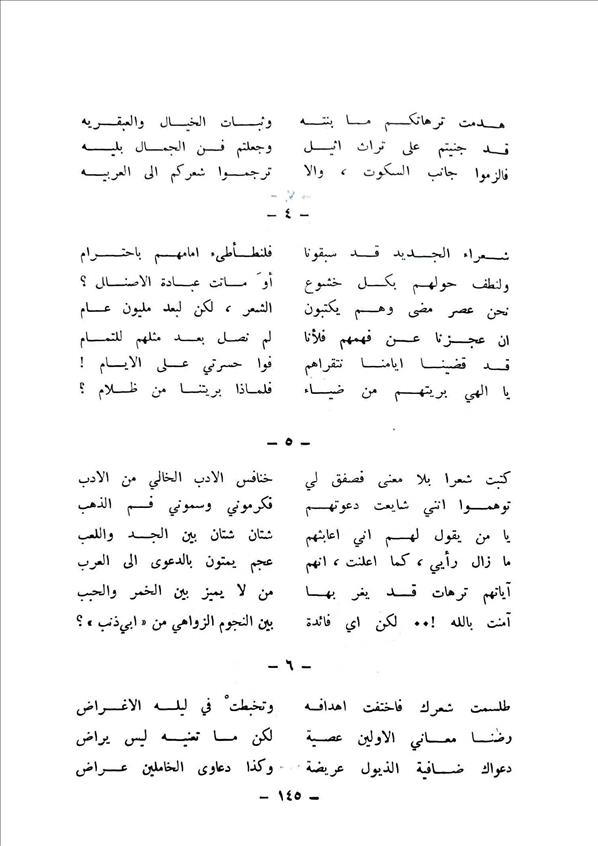 هدمت ترهاتكم ما بنته وثبات الخيال والعبقريه
قد جنيتم على تراث اثيل وجعلتم فن الجمال بليه
فالزموا جانب السكوت ، والا ترجموا شعركم الى العربيه
- ٤ -
شعراء الجديد قد سبقونا فلنطأطىء امامهم باحترام
ولنطف حولهم بكل خشوع أوَ ماتت عبادة الاصنال ؟
نحن عصر مضى وهم يكتبون الشعر ، لكن لبعد مليون عام
ان عجزنا عن فهمهم فلأنا لم نصل بعد مثلهم للتمام
قد قضينا ايامنا نتقراهم فوا حسرتي على الايام !
يا الهي بريتهم من ضياء فلماذا بريتنا من ظلام ؟
- ٥ -
كتبت شعرا بلا معنى فصفق لي خنافس الادب الخالي من الادب
توهموا انني شايعت دعوتهم فكرموني وسموني فم الذهب
يا من يقول لهم اني اعابثهم شتان شتان بين الجد واللعب
ما زال رأيي ، كما اعلنت ، انهم عجم يمتون بالدعوى الى العرب
آياتهم ترهات قد يغر بها من لا يميز بين الخمر والحبب
آمنت بالله !٠٠ لكن اي فائدة بين النجوم الزواهي من « ابي ذنب » ؟
- ٦ -
طلسمت شعرك فاختفت اهدافه وتخبطتْ في ليله الاغراض
رضنا معاني الاولين عصية لكن ما تعنيه ليس يراض
دعواك ضافية الذيول عريضة وكذا دعاوى الخاملين عراض
- ١٤٥ -